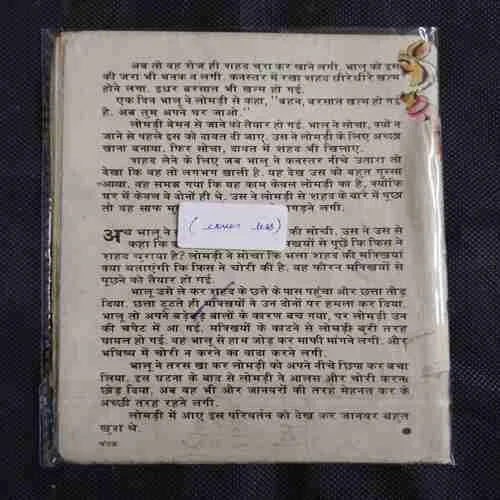 अब तो वह रोज ही शहद चुरा कर खाने लगी. भालू को इस
की जरा भी भनक न लगी. कनस्तर में रखा शहद धीरेधीरे खत्म
होने लगा. इधर बरसात भी खत्म हो गई.
एक दिन भालू ने लोमड़ी से कहा, "बहन, बरसात खत्म हो गई
है. अब तुम अपने घर जाओ."
लोमड़ी बेमन से जाने को तैयार हो गई. भालू ने सोचा, क्यों न
जाने से पहले इस को दावत दी जाए. उस ने लोमड़ी के लिए अच्छा
खाना बनाया. फिर सोचा, दावत में शहद भी खिलाए.
शहद लेने के लिए जब भालू ने कनस्तर नीचे उतारा तो
देखा कि वह तो लगभग खाली है. यह देख उस को बहुत गुस्सा
आया. वह समझ गया कि यह काम केवल लोमड़ी का है, क्योंकि
घर में केवल वे दोनों ही थे. उस ने लोमड़ी से शहद के बारे में पूछा
तो वह साफ गड़ने लगी.
(cover less)
अब भालू ने की सोची. उस ने उस से
कहा कि क्खियों से पूछें कि किस ने
शहद चुराया है? लोमड़ी ने सोचा कि भला शहद की मक्खियां
क्या बताएंगी कि किस ने चोरी की है. वह फौरन मक्खियों से
पूछने को तैयार हो गई.
भालू उसे ले कर शहद के छत्ते के पास पहुंचा और छत्ता तोड़
दिया. छत्ता टूटते ही मक्खियों ने उन दोनों पर हमला कर दिया.
भालू तो अपने बड़ेबड़े बालों के कारण बच गया, पर लोमड़ी उन
की चपेट में आ गई. मक्खियों के काटने से लोमड़ी बुरी तरह
घायल हो गई. वह भालू से हाथ जोड़ कर माफी मांगने लगी. और
भविष्य में चोरी न करने का वादा करने लगी.
भालू ने तरस खा कर लोमड़ी को अपने नीचे छिपा कर बचा
लिया. इस घटना के बाद से लोमड़ी ने आलस और चोरी करना
छोड़ दिया. अब वह भी और जानवरों की तरह मेहनत कर के
अच्छी तरह रहने लगी.
लोमड़ी में आए इस परिवर्तन को देख कर जानवर बहुत
खुश थे.
चंपक